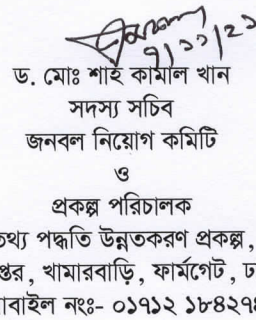 ৭/১১/২১
ড. মোঃ শাহ কামাল খান
সদস্য সচিব
জনবল নিয়োগ কমিটি
ও
প্রকল্প পরিচালক
তথ্য পদ্ধতি উন্নতকরণ প্রকল্প,
প্তর, খামারবাড়ি, ফার্মগেট, ঢ
াবাইল নংঃ- ০১৭১২ ১৮৪২৭৪